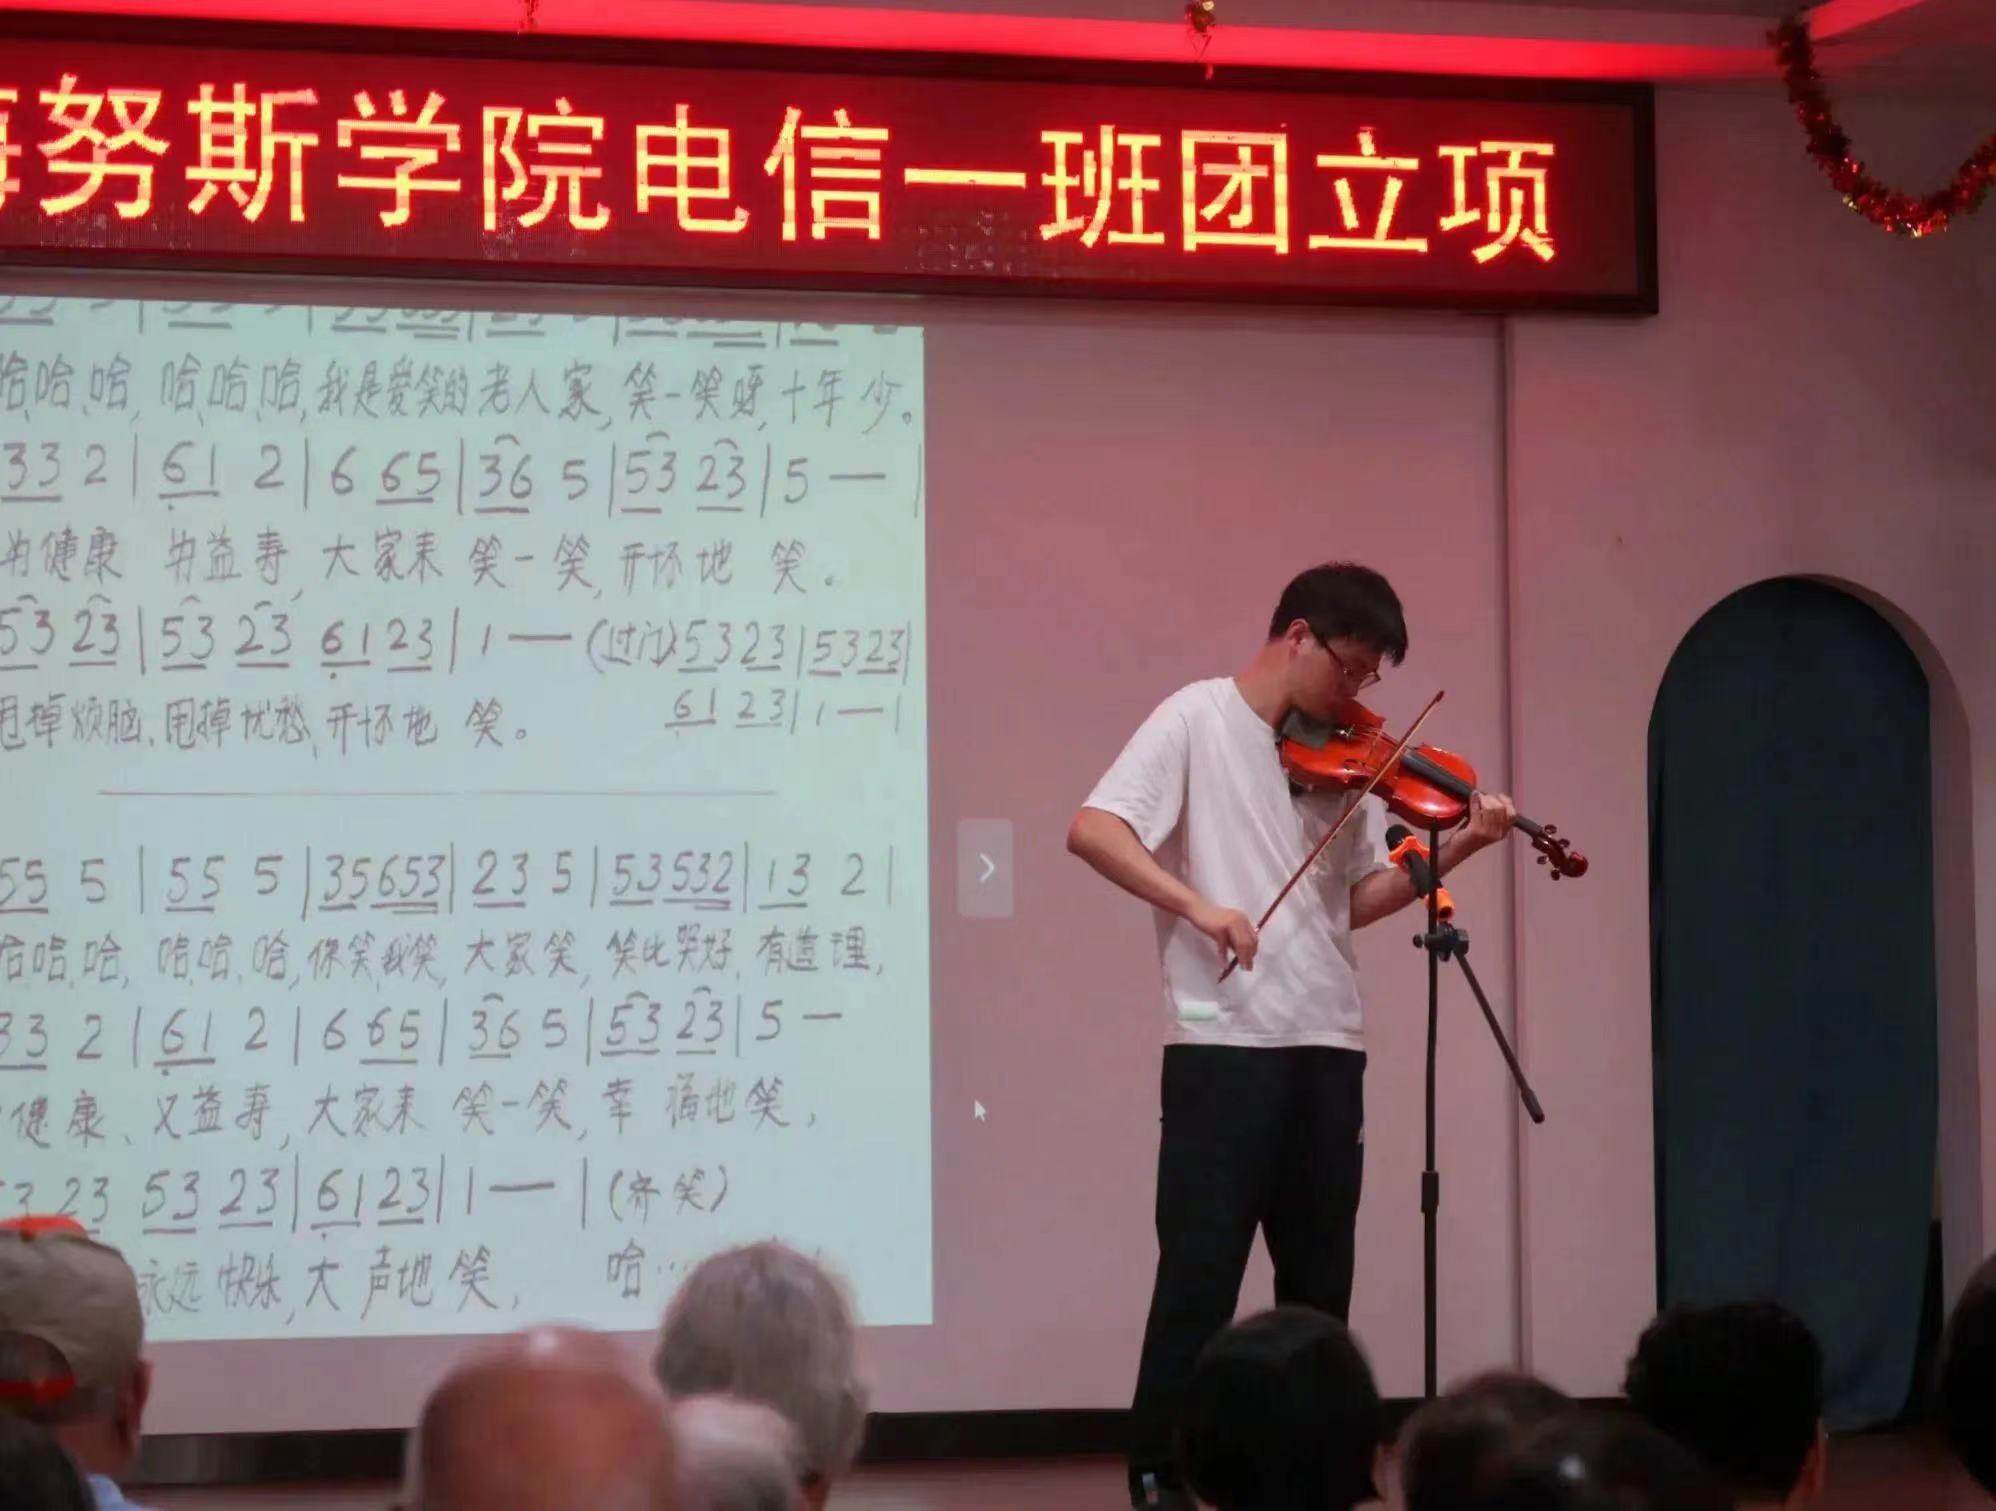 努斯学院电信一班团立项
哈、哈、哈, 哈、哈、哈, 我是爱笑的老人家, 笑一笑呀, 十年少。
33 2 | 61 2 | 6 65 | 36 5 | 53 23 | 5 — |
为健康 为益寿, 大家来 笑一笑, 开怀地 笑。
53 23 | 53 23 61 23 | 1 — (过门) 53 23 | 53 23 |
61 23 | 1 — |
甩掉烦脑、甩掉忧愁, 开怀地 笑。
55 5 | 55 5 | 35653 | 23 5 | 53532 | 13 2 |
哈、哈、哈, 哈、哈、哈, 你笑、我笑, 大家笑, 笑比哭好, 有道理,
33 2 | 61 2 | 6 65 | 36 5 | 53 23 | 5 —
健康、又益寿, 大家来 笑一笑, 幸福地笑,
23 53 23 | 61 23 | 1 — | (齐笑)
永远快乐, 大声地笑, 哈…